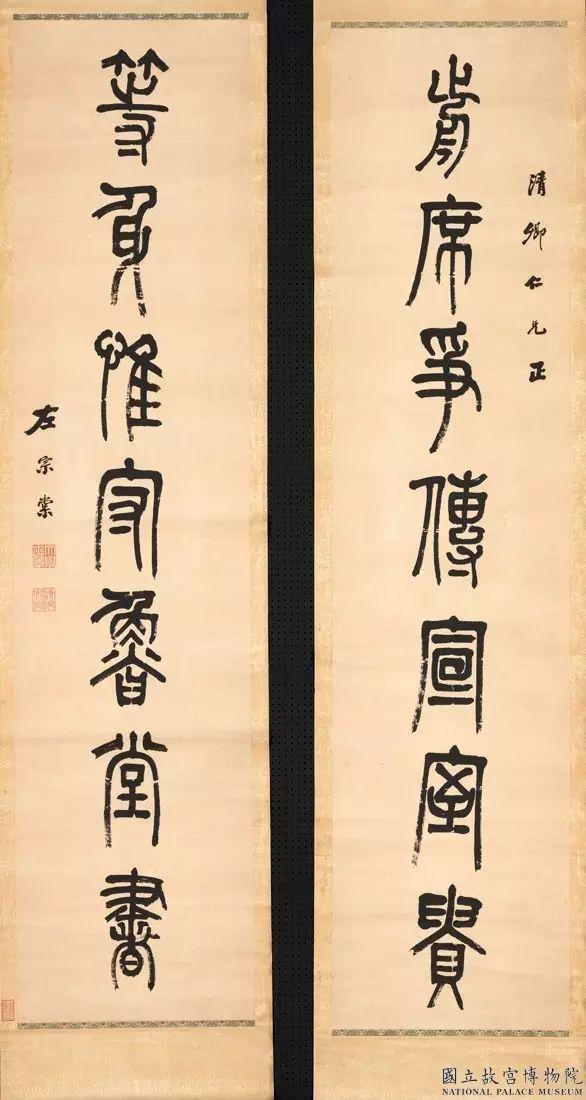 清卿仁兄正
歬席爭傳宣室貴
等身惟守魯堂書
左宗棠
國立故宮博物院
NATIONAL PALACE MUSEUM